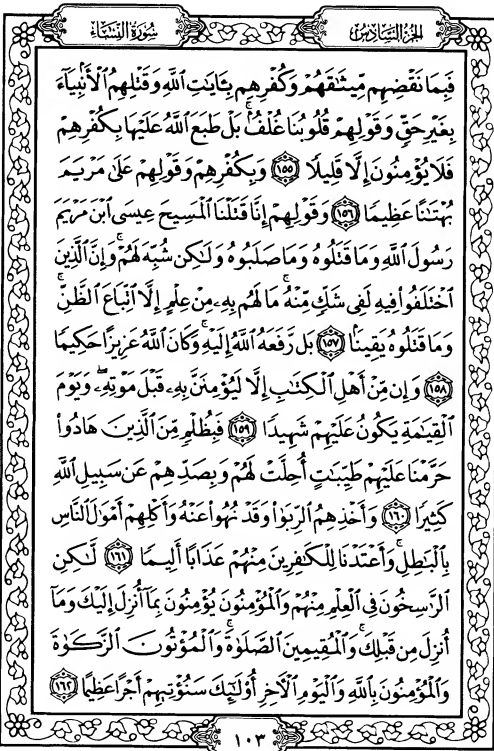 سُورَةُ النِّسَاءِ
الجُزْءُ السَّادِسُ
فَبِمَا نَقْضِهِم مِّيثَٰقَهُمْ وَكُفْرِهِم بِـَٔايَٰتِ اللَّهِ وَقَتْلِهِمُ الْأَنۢبِيَآءَ
بِغَيْرِ حَقٍّ وَقَوْلِهِمْ قُلُوبُنَا غُلْفٌۢ ۚ بَلْ طَبَعَ اللَّهُ عَلَيْهَا بِكُفْرِهِمْ
فَلَا يُؤْمِنُونَ إِلَّا قَلِيلًا ١٥٥ وَبِكُفْرِهِمْ وَقَوْلِهِمْ عَلَىٰ مَرْيَمَ
بُهْتَٰنًا عَظِيمًا ١٥٦ وَقَوْلِهِمْ إِنَّا قَتَلْنَا الْمَسِيحَ عِيسَى ابْنَ مَرْيَمَ
رَسُولَ اللَّهِ وَمَا قَتَلُوهُ وَمَا صَلَبُوهُ وَلَٰكِن شُبِّهَ لَهُمْ ۚ وَإِنَّ الَّذِينَ
اخْتَلَفُوا۟ فِيهِ لَفِى شَكٍّ مِّنْهُ ۚ مَا لَهُم بِهِۦ مِنْ عِلْمٍ إِلَّا اتِّبَاعَ الظَّنِّ ۚ
وَمَا قَتَلُوهُ يَقِينًۢا ١٥٧ بَل رَّفَعَهُ اللَّهُ إِلَيْهِ ۚ وَكَانَ اللَّهُ عَزِيزًا حَكِيمًا
١٥٨ وَإِن مِّنْ أَهْلِ الْكِتَٰبِ إِلَّا لَيُؤْمِنَنَّ بِهِۦ قَبْلَ مَوْتِهِۦ ۖ وَيَوْمَ
الْقِيَٰمَةِ يَكُونُ عَلَيْهِمْ شَهِيدًا ١٥٩ فَبِظُلْمٍ مِّنَ الَّذِينَ هَادُوا۟
حَرَّمْنَا عَلَيْهِمْ طَيِّبَٰتٍ أُحِلَّتْ لَهُمْ وَبِصَدِّهِمْ عَن سَبِيلِ اللَّهِ
كَثِيرًا ١٦٠ وَأَخْذِهِمُ الرِّبَوٰا۟ وَقَدْ نُهُوا۟ عَنْهُ وَأَكْلِهِمْ أَمْوَٰلَ النَّاسِ
بِالْبَٰطِلِ ۚ وَأَعْتَدْنَا لِلْكَٰفِرِينَ مِنْهُمْ عَذَابًا أَلِيمًا ١٦١ لَّٰكِنِ
الرَّٰسِخُونَ فِى الْعِلْمِ مِنْهُمْ وَالْمُؤْمِنُونَ يُؤْمِنُونَ بِمَآ أُنزِلَ إِلَيْكَ وَمَآ
أُنزِلَ مِن قَبْلِكَ ۚ وَالْمُقِيمِينَ الصَّلَوٰةَ ۚ وَالْمُؤْتُونَ الزَّكَوٰةَ
وَالْمُؤْمِنُونَ بِاللَّهِ وَالْيَوْمِ الْءَاخِرِ أُو۟لَٰٓئِكَ سَنُؤْتِيهِمْ أَجْرًا عَظِيمًا ١٦٢
١٠٣